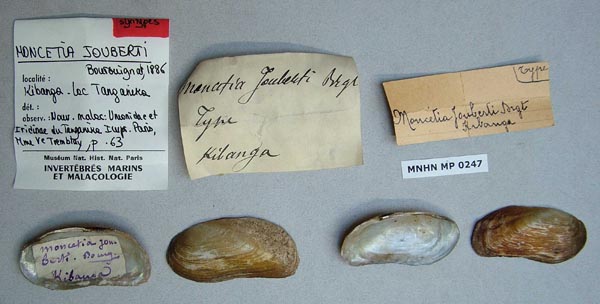 Syntypes
MONCETIA JOUBERTI
Bourguignat, 1886
localité :
Kibanga - Lac Tanganika
dét. :
observ. : Nouv. malac. Unionidae et
Iridinae du Tanganika Impr. Paris,
Mme Ve Tremblay, p. 63
Muséum Nat. Hist. Nat. Paris
INVERTÉBRÉS MARINS
ET MALACOLOGIE
Moncetia Jouberti Brgt
Type
Kibanga
Type
Moncetia Jouberti Brgt
Kibanga
MNHN MP 0247
moncetia Jou-
berti. Bourg.
Kibanga